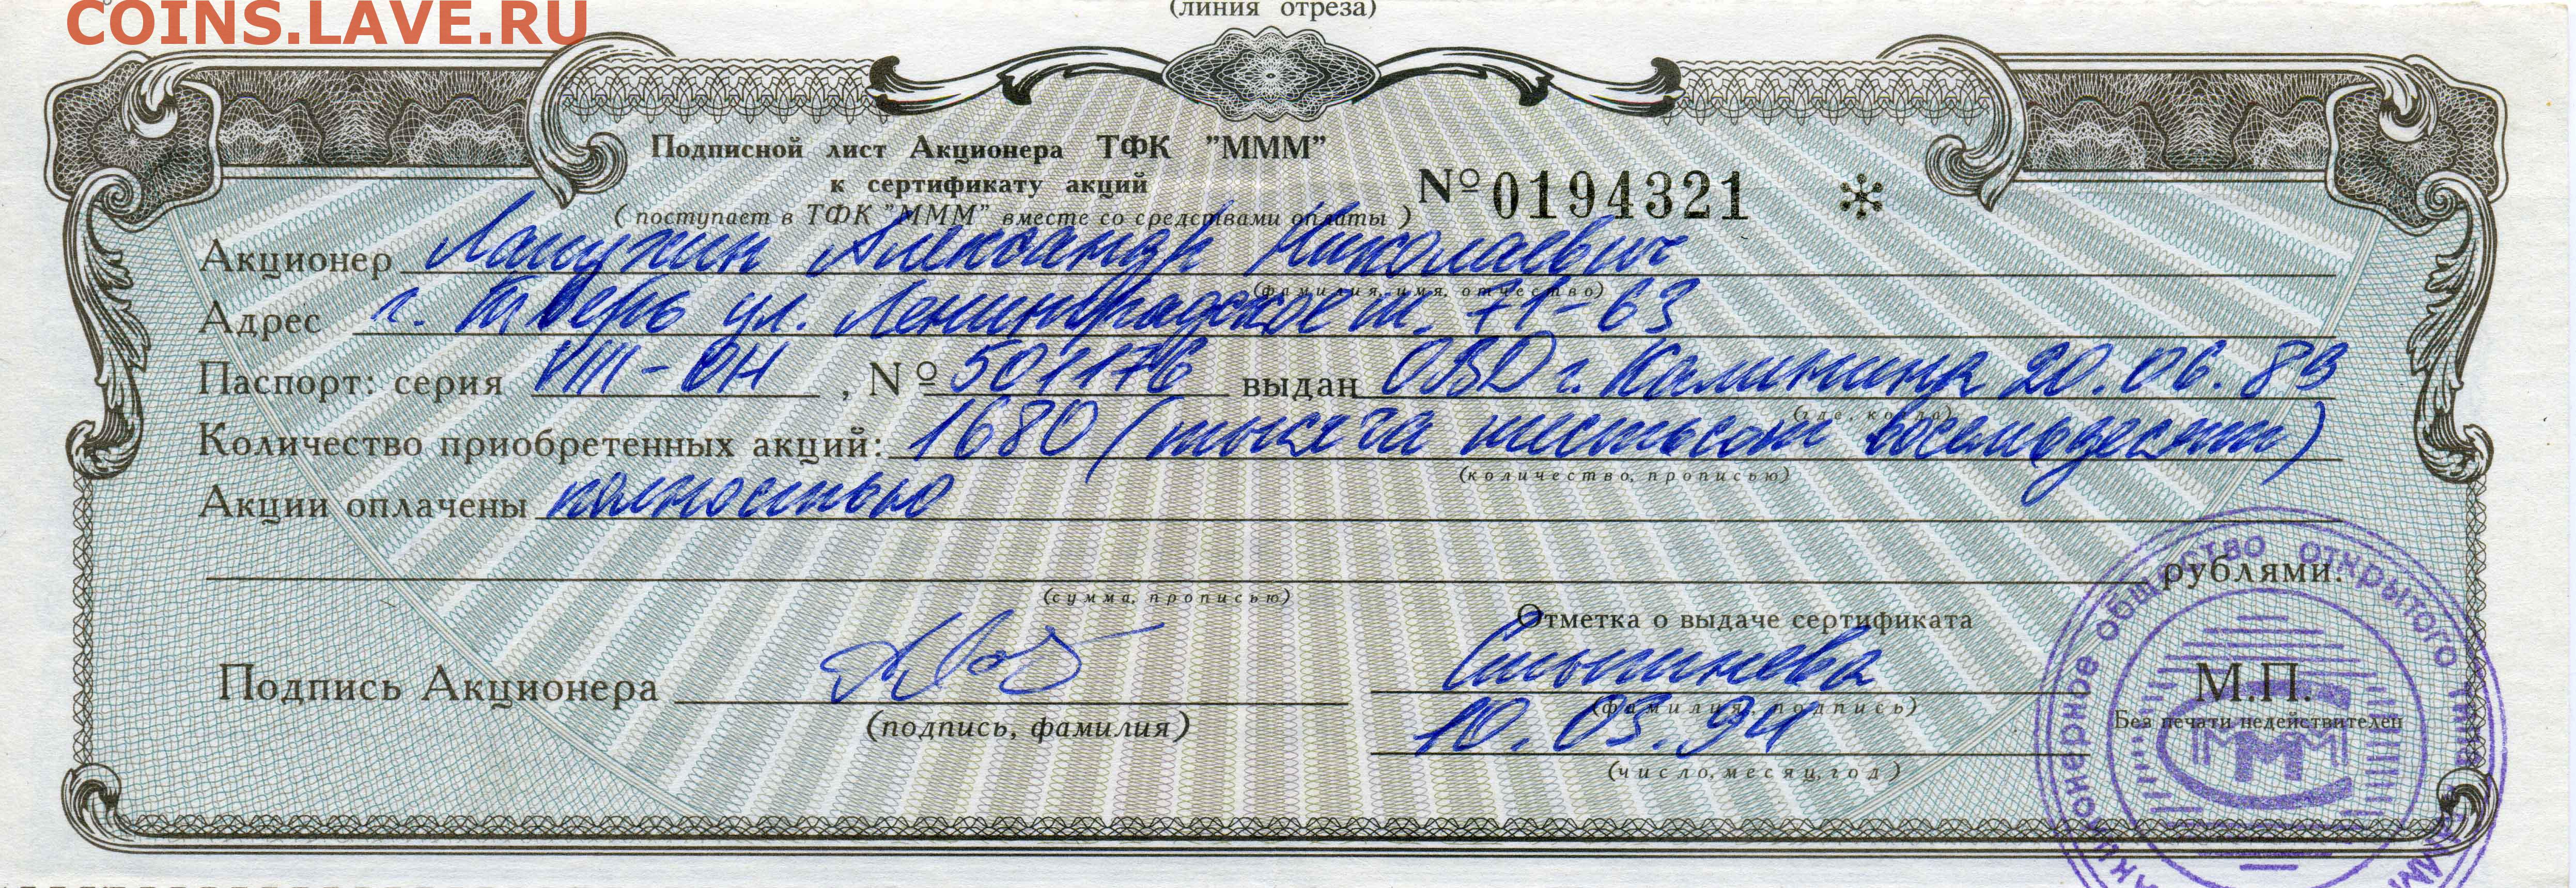 (линия отреза)
COINS.LAVE.RU
Подписной лист Акционера ТФК "МММ"
к сертификату акций
(поступает в ТФК "МММ" вместе со средствами оплаты)
№ 0194321 *
Акционер Лапухин Александр Николаевич
(фамилия, имя, отчество)
Адрес г. Тверь ул. Ленинградское ш. 71-63
Паспорт: серия VIII-ОН, № 501176 выдан ОВД г. Калинина 20.06.89
(где, когда)
Количество приобретенных акций: 1680 (тысяча шестьсот восемьдесят)
(количество, прописью)
Акции оплачены полностью
рублями.
(сумма, прописью)
Отметка о выдаче сертификата
Подпись Акционера
(подпись, фамилия)
(фамилия, подпись)
10.03.94
(число, месяц, год)
М.П.
Без печати недействителен
акционерное общество открытого типа
МММ